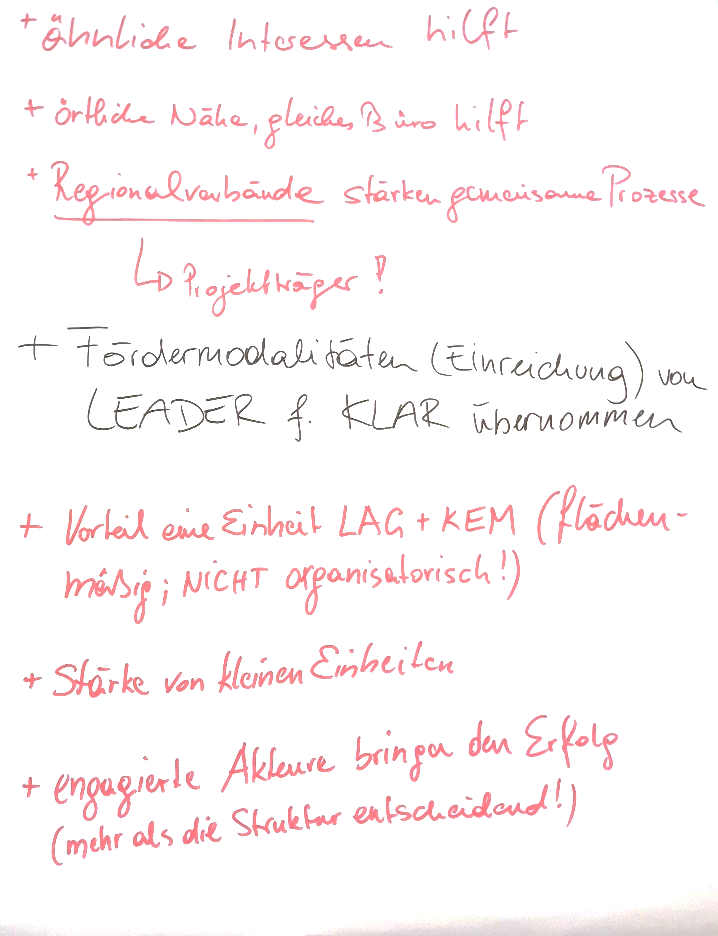 + ähnliche Interessen hilft
+ örtliche Nähe, gleiches Büro hilft
+ Regionalverbände stärken gemeinsame Prozesse
↳ Projektträger!
+ Fördermodalitäten (Einreichung) von
LEADER f. KLAR übernommen
+ Vorteil eine Einheit LAG + KEM (flächen-
mäßig; NICHT organisatorisch!)
+ Stärke von kleinen Einheiten
+ engagierte Akteure bringen den Erfolg
(mehr als die Struktur entscheidend!)